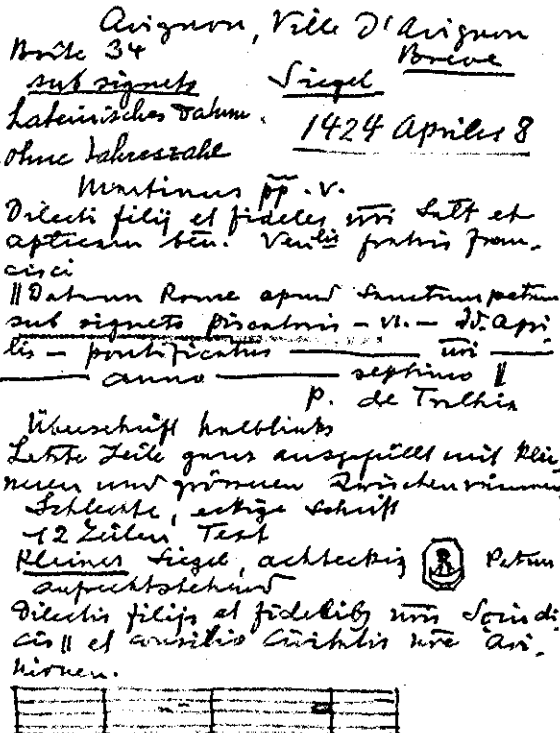 Avignon, Ville D'Avignon
Boîte 34 Breve
sub signeto Siegel
Lateinisches Datum.
ohne Jahreszahl 1424 Aprilis 8
Martinus pp. V.
Dilecti filij et fideles nri Salt et
apticam ben. Venlis fratris Fran-
cisci
|| Datum Rome apud Sanctum petrum
sub signeto piscatoris - VI. - Id. Apri
lis - pontificatus nri
anno septimo ||
P. de Trilhia
Überschrift halblinks
Letzte Zeile ganz ausgefüllt mit klei-
neren und grösseren Zwischenräumen
Schlechte, eckige Schrift
12 Zeilen Text
Kleines Siegel, achteckig Petrus
aufrechtstehend
Dilectis filijs et fidelib; nris Scindi
cis || et consilio Civitatis nre Avi-
nionen.